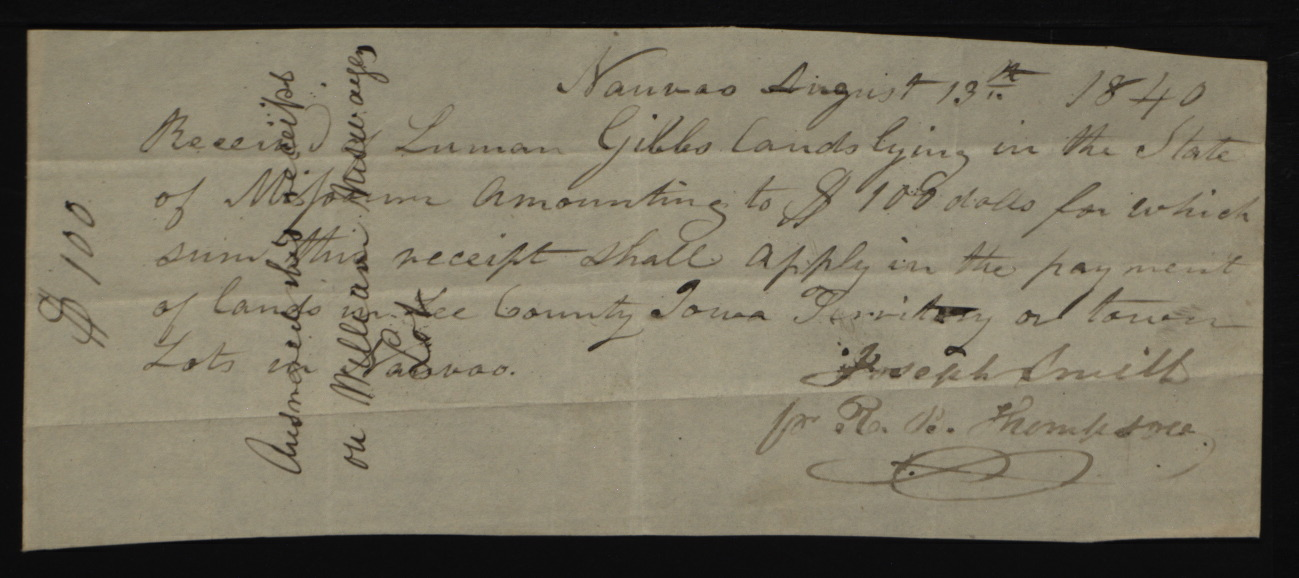 Nauvoo August 13th 1840
Received Luman Gibbs lands lying in the State
of Missouri amounting to $ 100 dolls for which
sum this receipt shall apply in the payment
of lands in Lee County Iowa Territory or town
Lots in Nauvoo.
Joseph Smith
pr R. B. Thompson
$ 100
receipt
on William
Lot